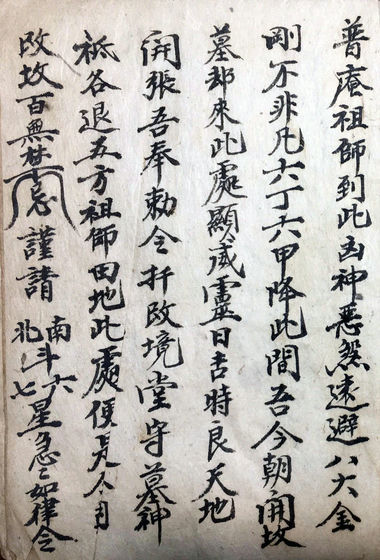 普庵祖師到此凶神惡煞速避八大金
剛不非凡六丁六甲降此間吾今朝開坟
墓都來此處顯威靈日吉時良天地
開張吾奉勅令扦改境堂守墓神
祗各退五方祖師田地此處便是
改坟百無禁忌謹請南斗六北斗七星急急如律令